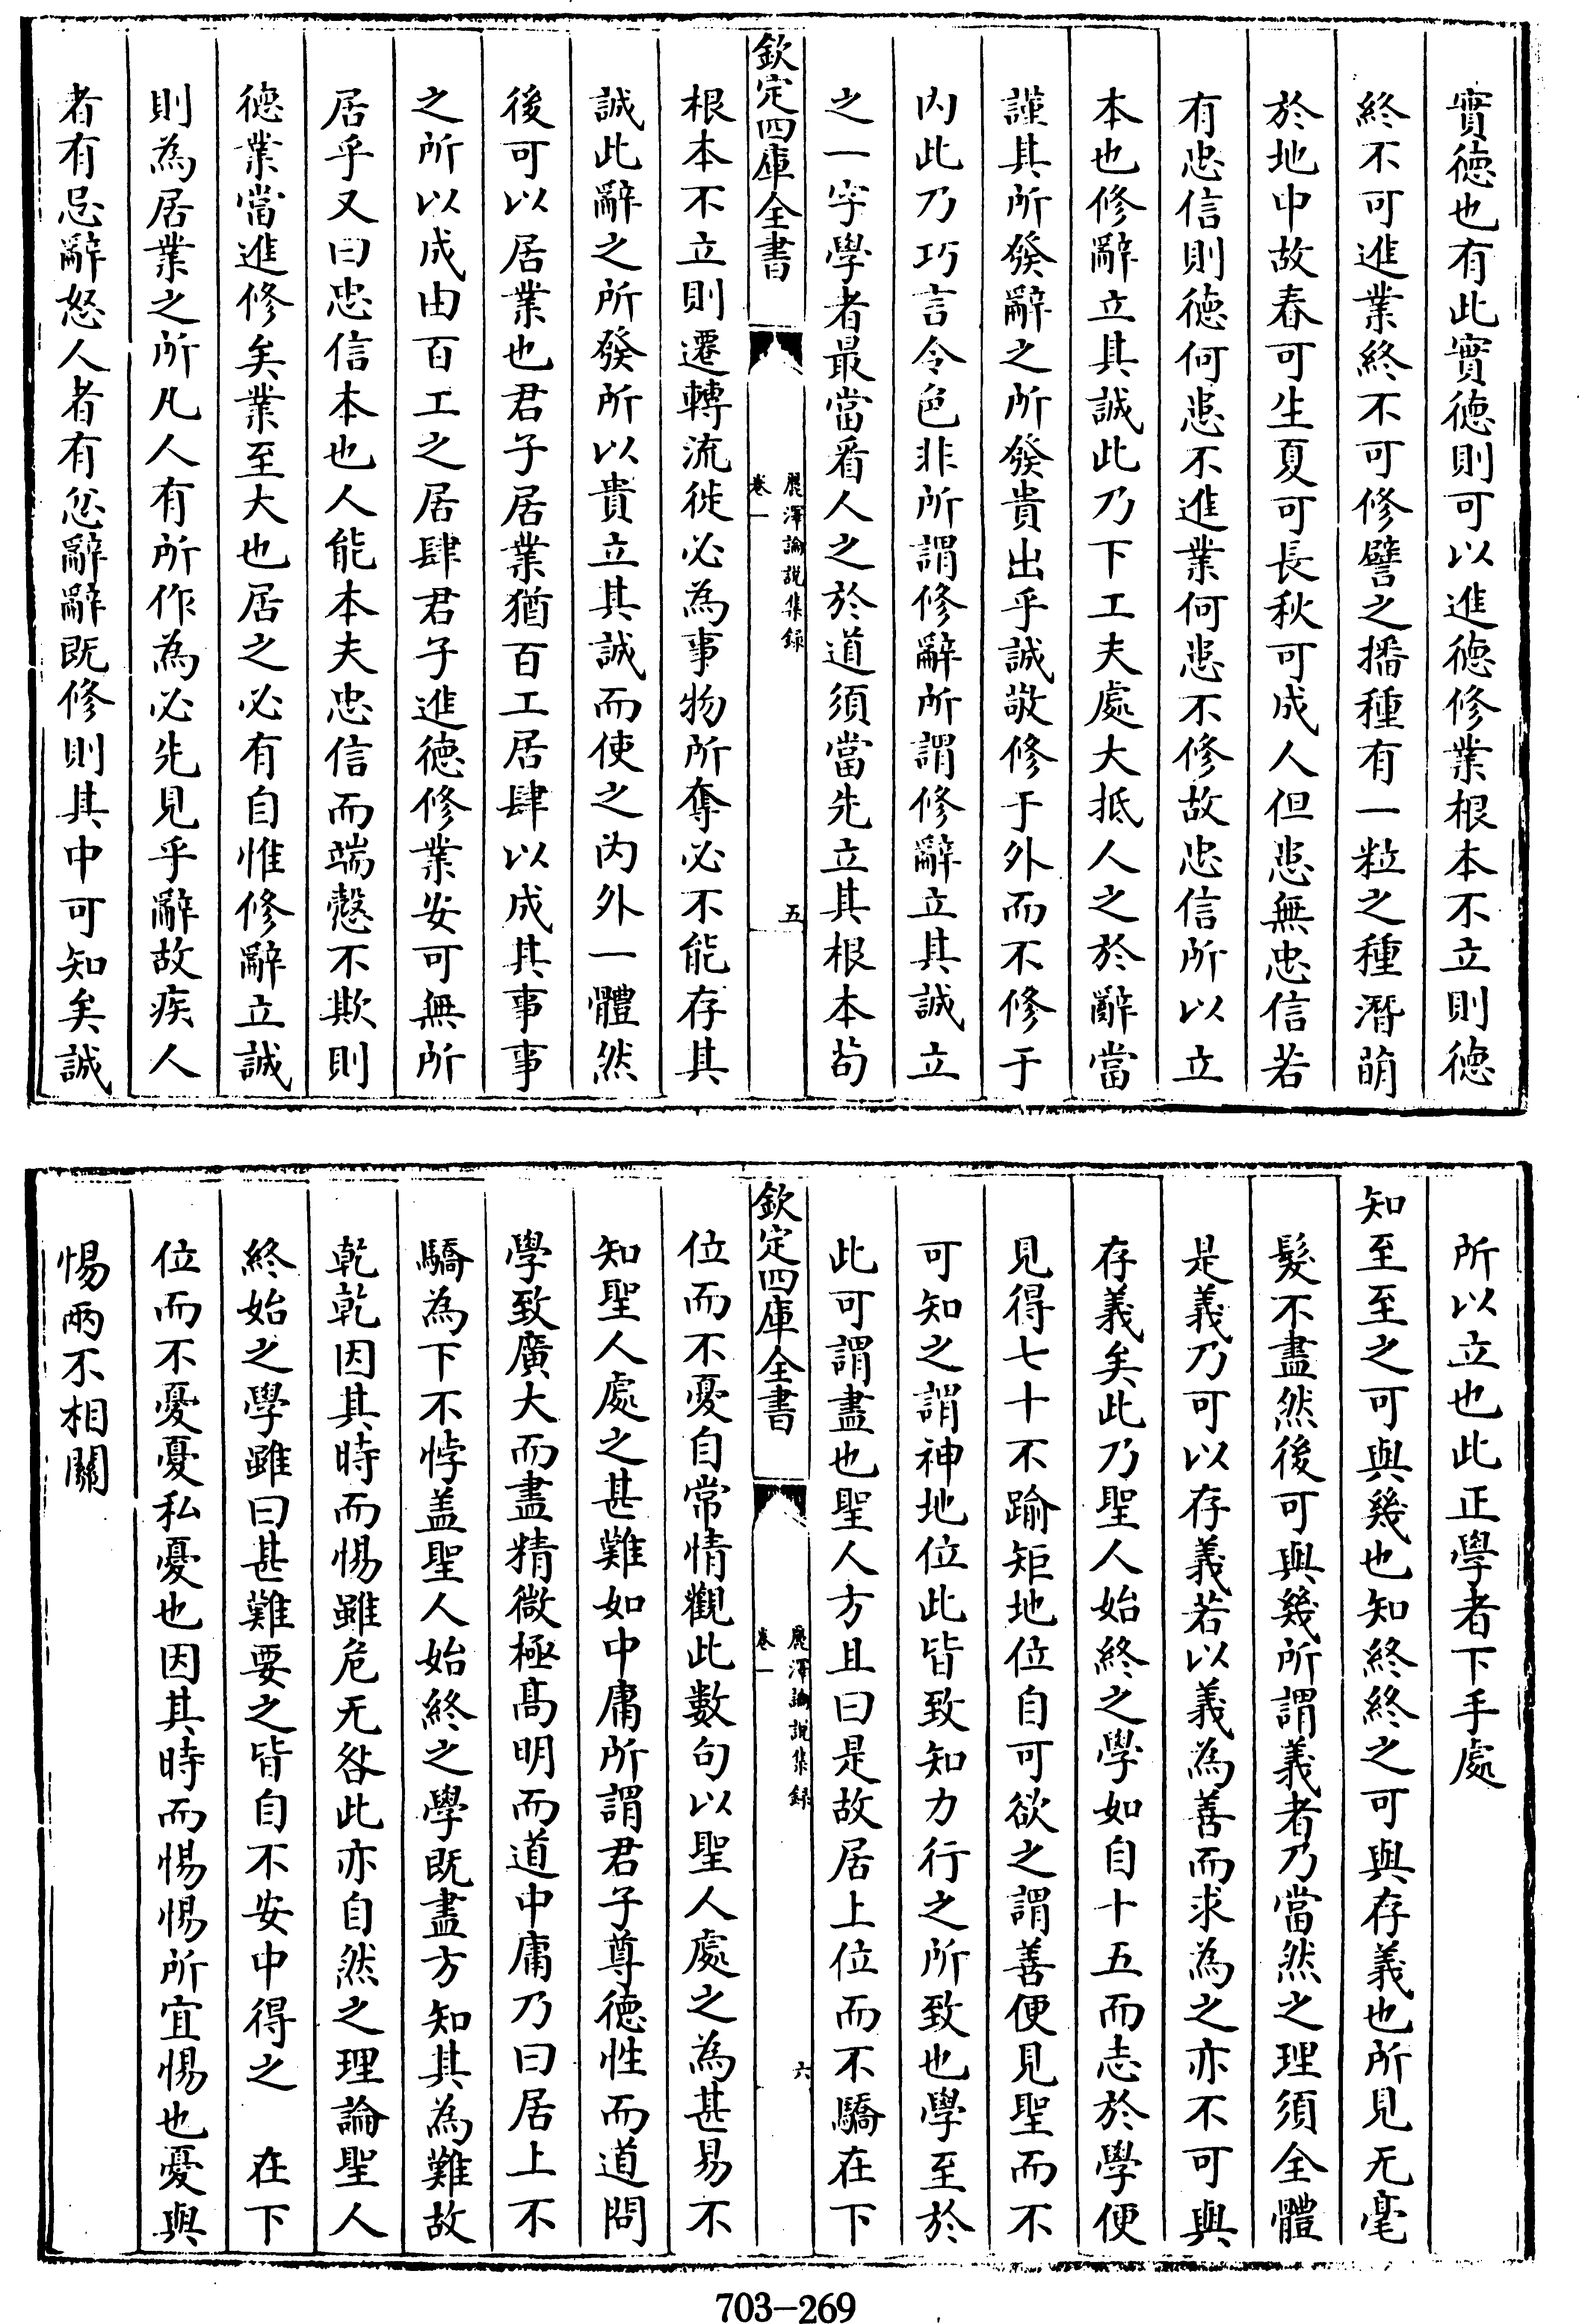 實徳也有此實徳則可以進徳修業根本不立則徳
終不可進業終不可修譬之播種有一粒之種潛萌
於地中故春可生夏可長秋可成人但患無忠信若
有忠信則徳何患不進業何患不修故忠信所以立
本也修辭立其誠此乃下工夫處大抵人之於辭當
謹其所發辭之所發貴出乎誠敬修于外而不修于
内此乃巧言令色非所謂修辭所謂修辭立其誠立
之一字學者最當看人之於道須當先立其根本茍
欽定四庫全書
麗澤論說集録
卷一
五
根本不立則遷轉流徙必為事物所奪必不能存其
誠此辭之所發所以貴立其誠而使之内外一體然
後可以居業也君子居業猶百工居肆以成其事事
之所以成由百工之居肆君子進徳修業安可無所
居乎又曰忠信本也人能本夫忠信而端慤不欺則
徳業當進修矣業至大也居之必有自惟修辭立誠
則為居業之所凡人有所作為必先見乎辭故疾人
者有忌辭怒人者有忿辭辭既修則其中可知矣誠
所以立也此正學者下手處
知至至之可與幾也知終終之可與存義也所見无毫
髮不盡然後可與幾所謂義者乃當然之理須全體
是義乃可以存義若以義為善而求為之亦不可與
存義矣此乃聖人始終之學如自十五而志於學便
見得七十不踰矩地位自可欲之謂善便見聖而不
可知之謂神地位此皆致知力行之所致也學至於
此可謂盡也聖人方且曰是故居上位而不驕在下
欽定四庫全書
麗澤論說集録
卷一
六
位而不憂自常情觀此數句以聖人處之為甚易不
知聖人處之甚難如中庸所謂君子尊徳性而道問
學致廣大而盡精微極髙明而道中庸乃曰居上不
驕為下不悖盖聖人始終之學既盡方知其為難故
乾乾因其時而惕雖危无咎此亦自然之理論聖人
終始之學雖曰甚難要之皆自不安中得之　在下
位而不憂憂私憂也因其時而惕惕所宜惕也憂與
惕兩不相關
703-269